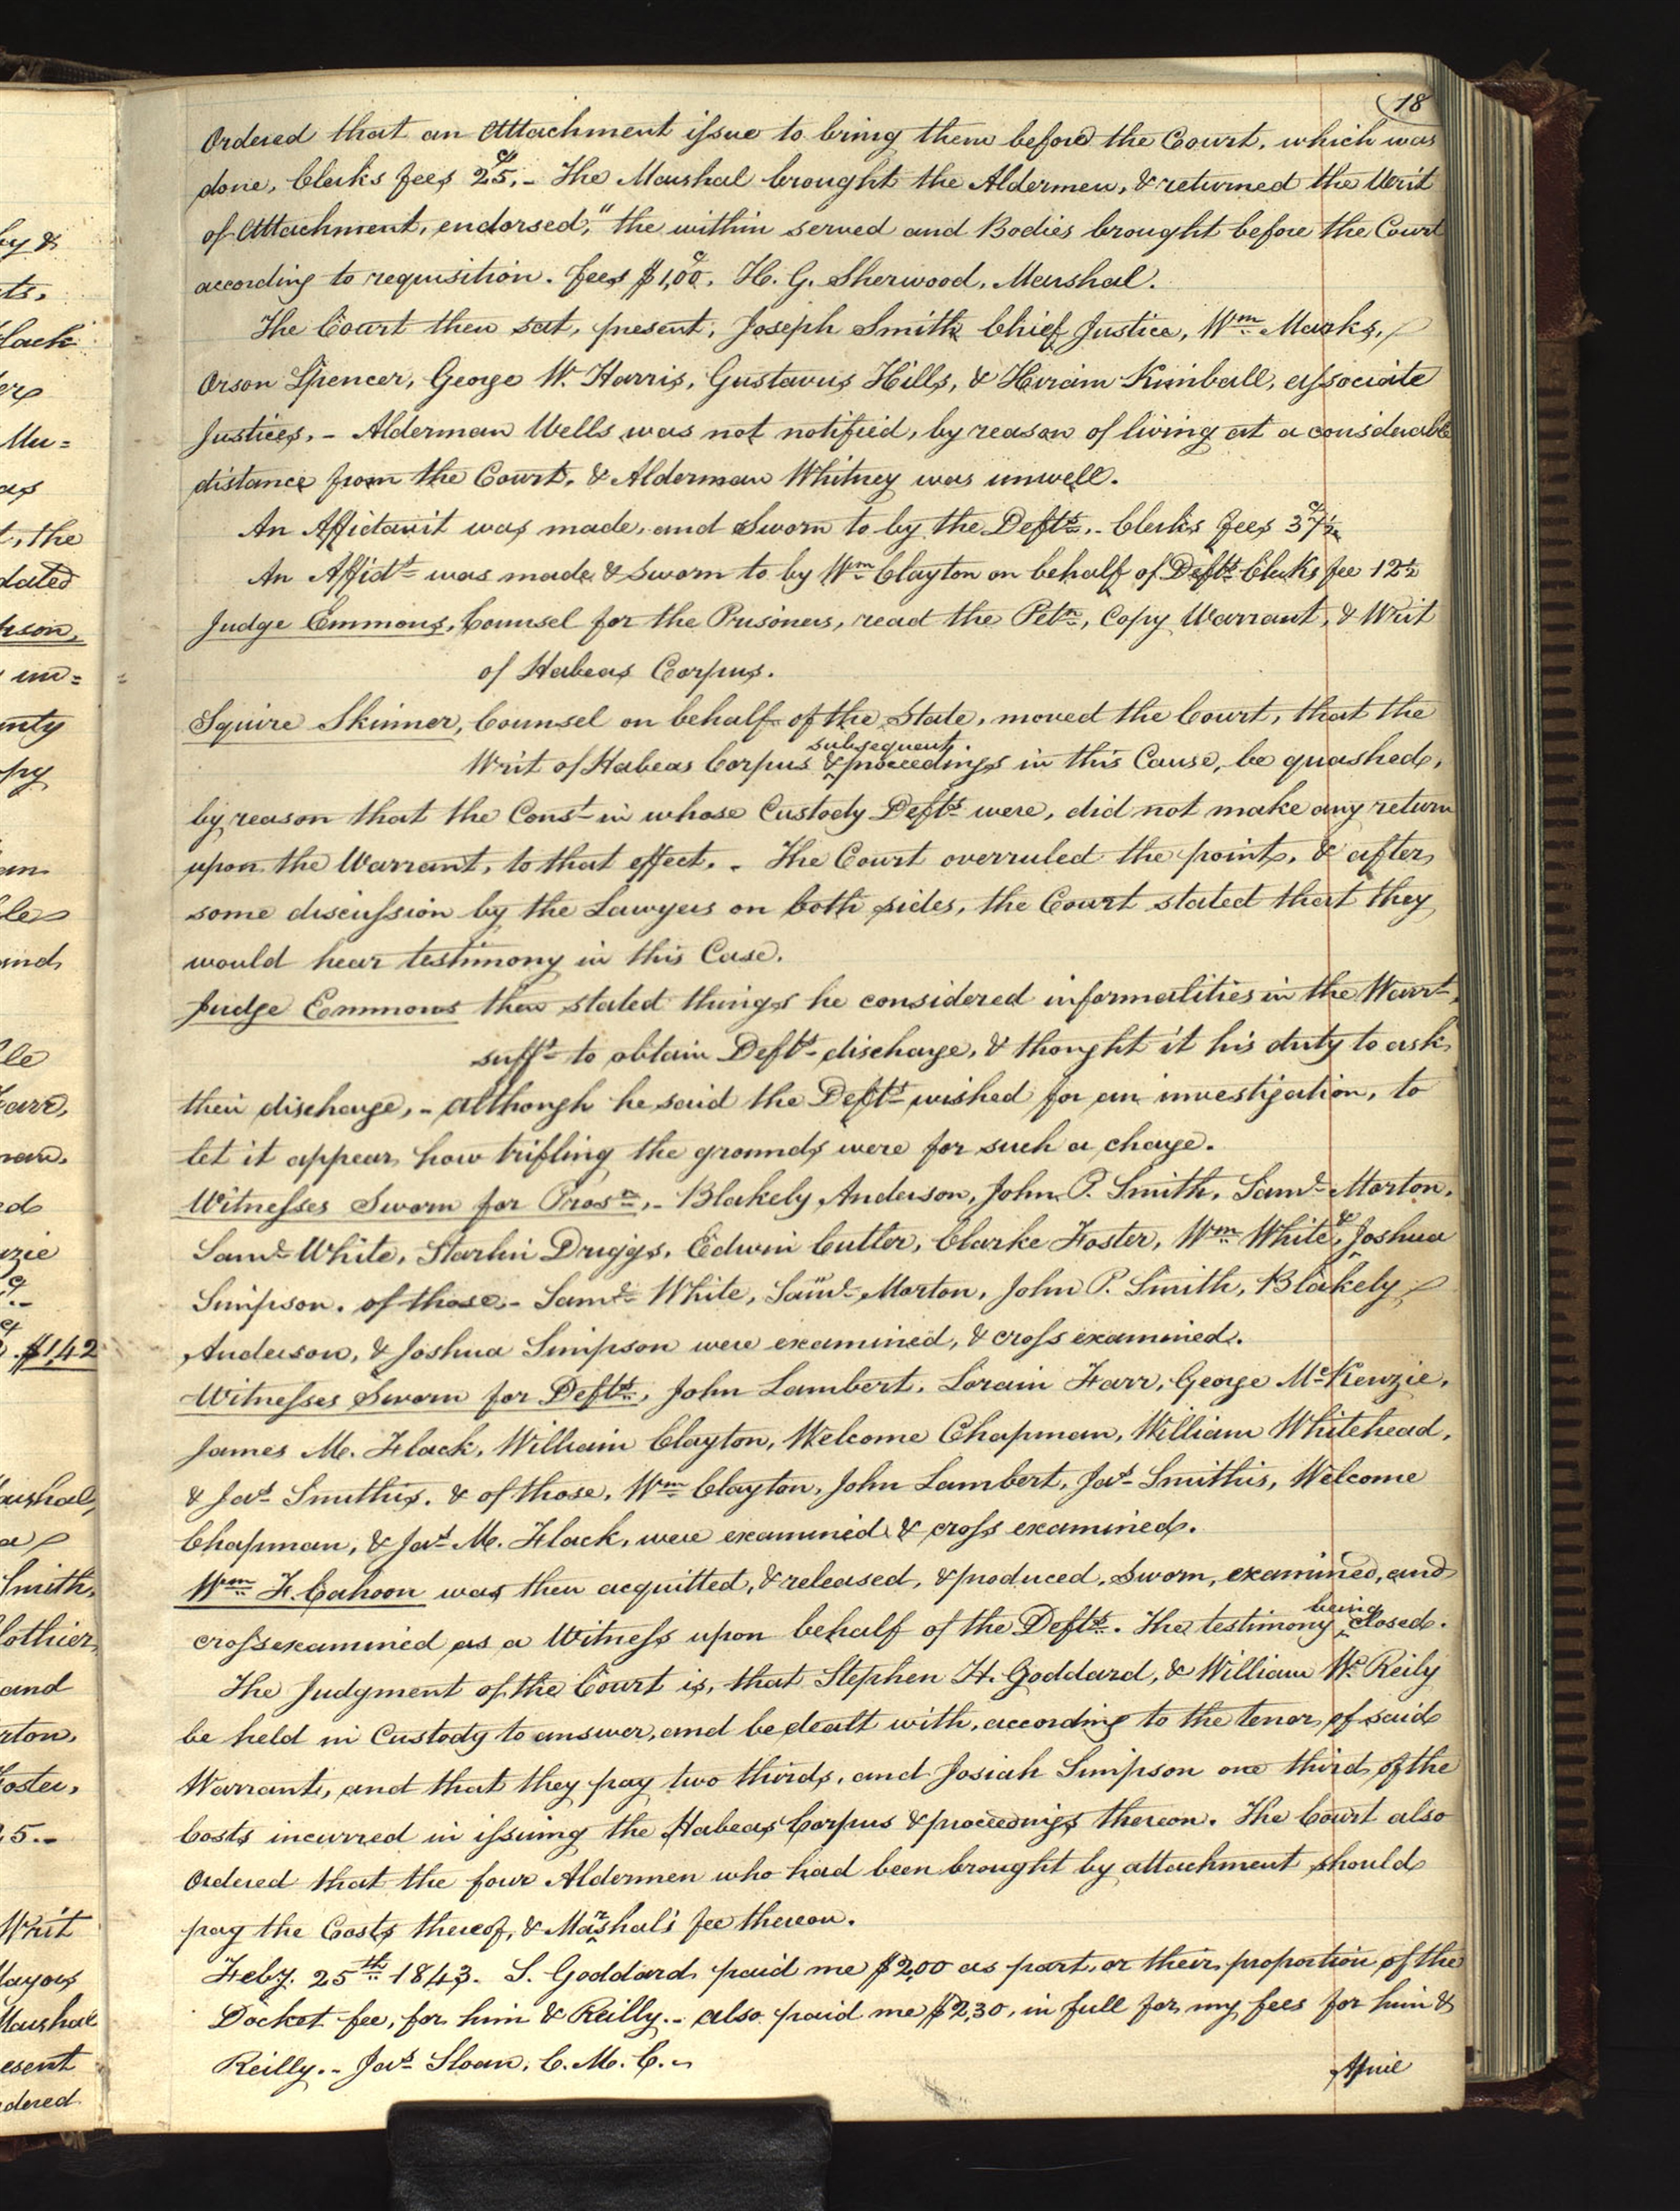 18
Ordered that an Attachment issue to bring them before the Court, which was
done, Clerks fees 25¢.- The Marshal brought the Aldermen, & returned the Writ
of Attachment, endorsed, "the within served and Bodies brought before the Court
according to requisition. fees $1,00. H. G. Sherwood, Marshal.
The Court then sat, present, Joseph Smith Chief Justice, Wm Marks,
Orson Spencer, George W. Harris, Gustavus Hills, & Hiram Kimball, associate
Justices,- Alderman Wells was not notified, by reason of living at a considerable
distance from the Court, & Alderman Whitney was unwell.
An Affidavit was made, and Sworn to by the Defts,- Clerks fees 37½
An Affidt was made & Sworn to by Wm Clayton on behalf of Defts Clerks fee 12½
Judge Emmons, Counsel for the Prisoners, read the Petn, Copy Warrant, & Writ
of Habeas Corpus.
Squire Skinner, Counsel on behalf of the State, moved the Court, that the
Writ of Habeas Corpus & subsequent proceedings in this Cause, be quashed,
by reason that the Const in whose Custody Defts were, did not make any return
upon the Warrant, to that effect.- The Court overruled the point, & after
some discussion by the Lawyers on both sides, the Court stated that they
would hear testimony in this Case.
Judge Emmons then stated things he considered informalities in the Warrt
sufft to obtain Defts discharge, & thought it his duty to ask
their discharge,- although he said the Defts wished for an investigation, to
let it appear how trifling the grounds were for such a charge.
Witnesses Sworn for Prosn,- Blakely Anderson, John P. Smith, Saml Morton,
Saml White, Starlin Driggs, Edwin Cutler, Clarke Foster, Wm White, & Joshua
Simpson. of those,- Saml White, Saml Morton, John P. Smith, Blakely
Anderson, & Joshua Simpson were examined, & cross examined.
Witnesses Sworn for Defts, John Lambert, Lorain Farr, George McKenzie,
James M. Flack, William Clayton, Welcome Chapman, William Whitehead,
& Jas Smithis. & of those, Wm Clayton, John Lambert, Jas Smithis, Welcome
Chapman, & Jas M. Flack, were examined & cross examined.
Wm F. Cahoon was then acquitted, & released, & produced, Sworn, examined, and
cross examined as a Witness upon behalf of the Defts. The testimony being closed.
The Judgment of the Court is, that Stephen H. Goddard, & William W. Reily
be held in Custody to answer, and be dealt with, according to the tenor of said
Warrant, and that they pay two thirds, and Josiah Simpson one third of the
Costs incurred in issuing the Habeas Corpus & proceedings thereon. The Court also
Ordered that the four Aldermen who had been brought by attachment should
pay the Costs thereof, & Marshal's fee thereon.
Feby. 25th 1843. S. Goddard paid me $2,00 as part, or their proportion of the
Docket fee, for him & Reilly.- also paid me $2,30, in full for my fees for him &
Reilly.- Jas Sloan, C. M. C.
April
by &
Mu=
as
t, the
dated
im=
and
$1,42
Smith,
and
Foster,
Writ
esent
dered